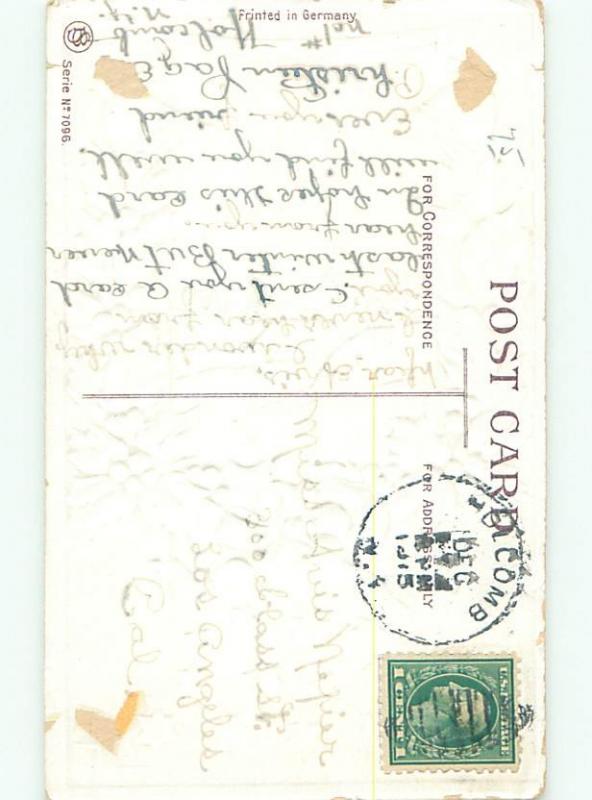 POST CARD
FOR CORRESPONDENCE
FOR ADDRESS ONLY
Printed in Germany
Serie No 7096.
HOLCOMB
DEC
1915
N.Y.
U.S. POSTAGE
1 CENT 1
75
Dear Avis.
I wonder why
I never hear from
you. I sent you a card
last winter But never
hear from you.
In hopes this card
will find you well.
Ever your friend
Page
Holcomb
N.Y.
Miss Avis Napier
Los Angeles
Cal.